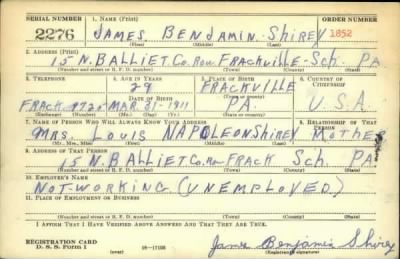 SERIAL NUMBER 1. NAME (Print) ORDER NUMBER
2276 JAMES BENJAMIN SHIREY 1852
(First) (Middle) (Last)
2. ADDRESS (Print)
15 N. BALLIET Co. Row FRACKVILLE - Sch. PA.
(Number and street or R. F. D. number) (Town) (County) (State)
3. TELEPHONE 4. AGE IN YEARS 5. PLACE OF BIRTH 6. COUNTRY OF CITIZENSHIP
29 FRACKVILLE
DATE OF BIRTH
FRACK. MAR. 31-1911 PA. U.S.A.
(Exchange) (Number) (Mo.) (Day) (Yr.) (State or country)
7. NAME OF PERSON WHO WILL ALWAYS KNOW YOUR ADDRESS 8. RELATIONSHIP OF THAT PERSON
MRS. LOUIS NAPOLEON SHIREY MOTHER
(Mr., Mrs., Miss) (First) (Middle) (Last)
9. ADDRESS OF THAT PERSON
15 N. BALLIET Co. Row FRACK Sch. PA.
(Number and street or R. F. D. number) (Town) (County) (State)
10. EMPLOYER'S NAME
NOT WORKING (UNEMPLOYED)
11. PLACE OF EMPLOYMENT OR BUSINESS
(Number and street or R. F. D. number) (Town) (County) (State)
I AFFIRM THAT I HAVE VERIFIED ABOVE ANSWERS AND THAT THEY ARE TRUE.
REGISTRATION CARD
D. S. S. Form 1 (over) James Benjamin Shirey
(Registrant's signature)